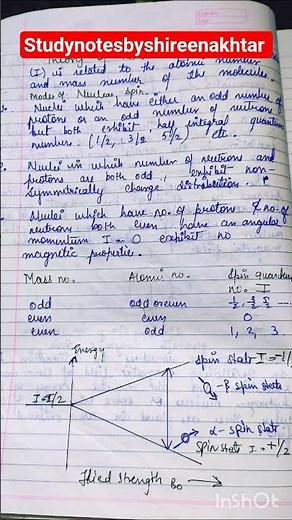 Studynotesbyshireenakhtar
Theory of
(I) is related to the atomic number
and mass number of the molecules.
Modes of Nuclear Spin.
Nuclei which have either an odd number of
proton or an odd number of neutron
but both exhibit half integral quantum
number. (1/2, 3/2 5/2) etc.
Nuclei in which number of neutron and
protons are both odd, exhibit non-
symmetrically charge distribution.
Nuclei which have no. of proton & no. of
neutron both even have an angular
momentum I = 0 exhibit no
magnetic properties.
Mass no. Atomic no. Spin quantum
no. I
odd odd or even 1/2, 3/2 5/2 ----
even even 0
even odd 1, 2, 3
Energy
Spin state I = -1/2
β spin state
I = 1/2
α - spin state
Spin state I = +1/2
Filed strength B₀
InShOt